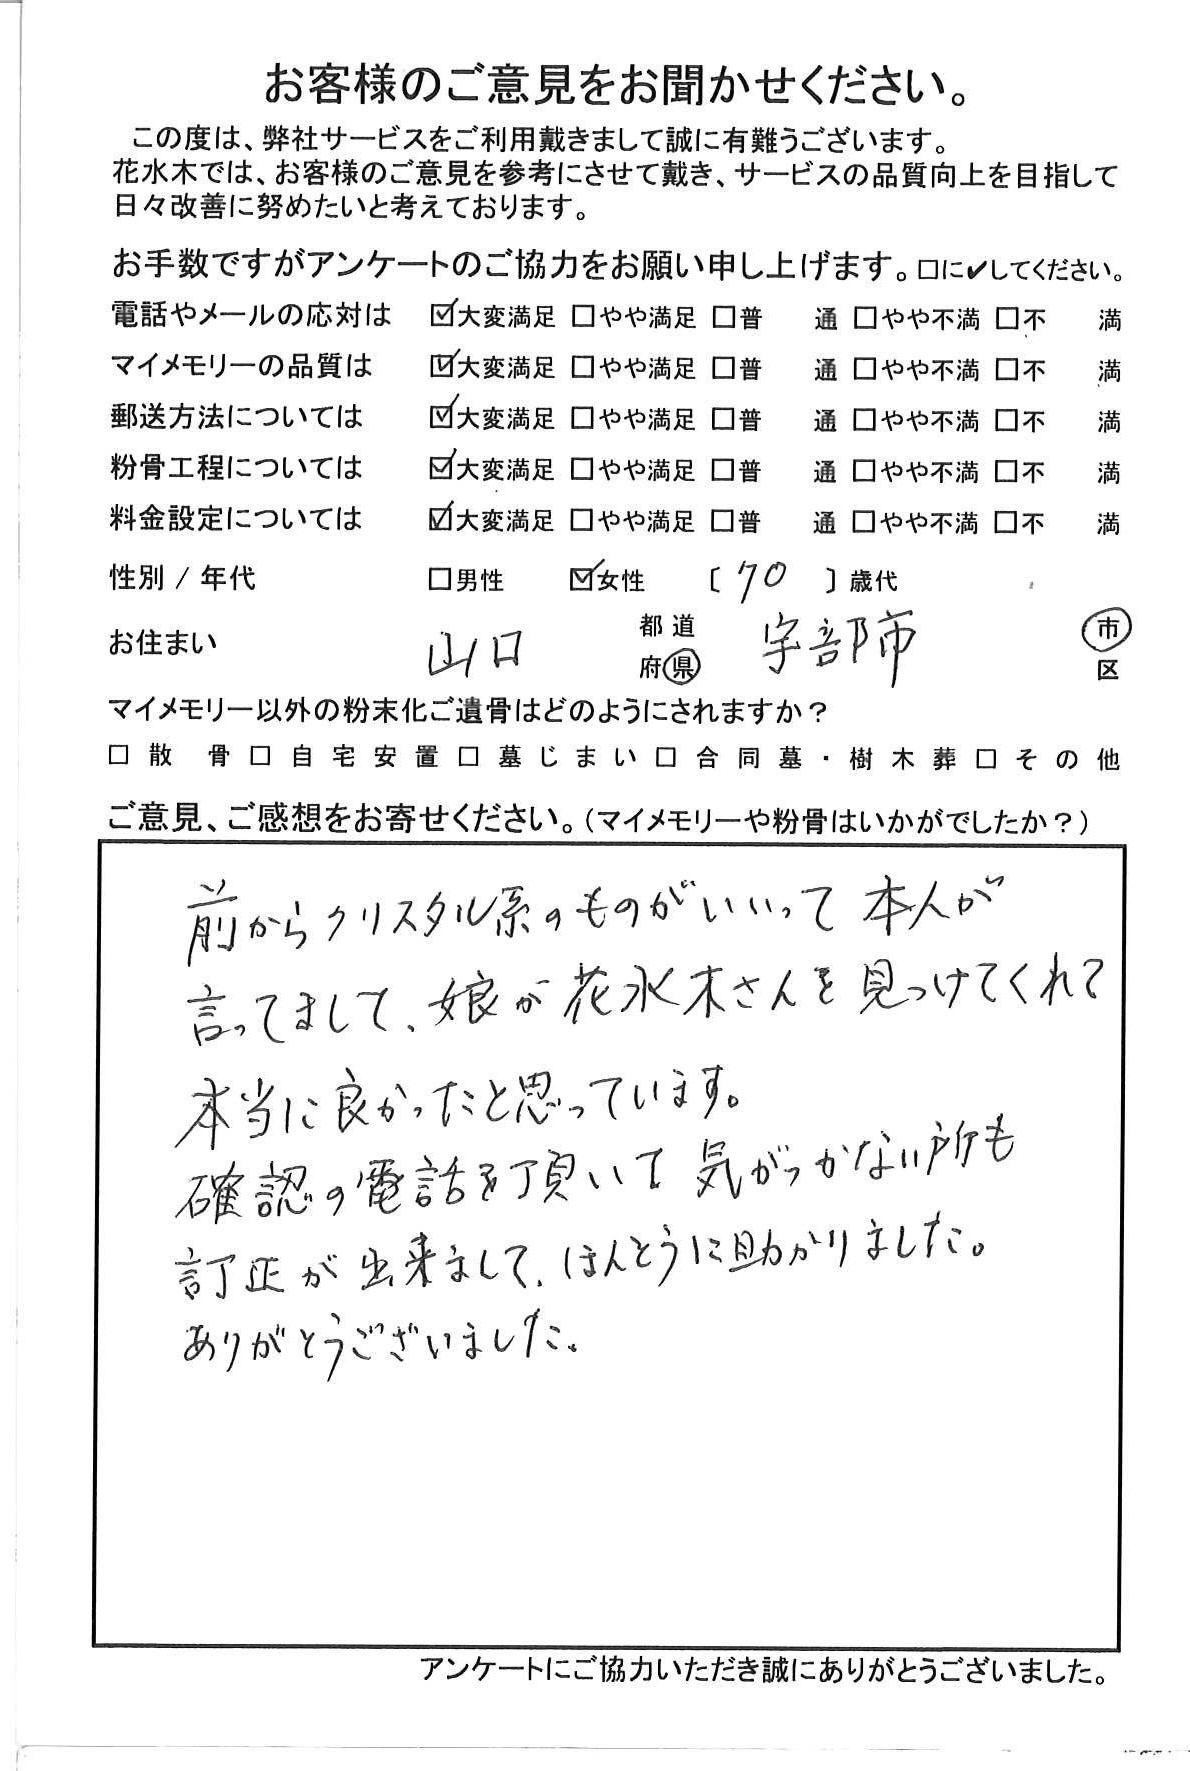 お客様のご意見をお聞かせください。
この度は、弊社サービスをご利用戴きまして誠に有難うございます。
花水木では、お客様のご意見を参考にさせて戴き、サービスの品質向上を目指して
日々改善に努めたいと考えております。
お手数ですがアンケートのご協力をお願い申し上げます。□に✔してください。
電話やメールの応対は ☑大変満足 □やや満足 □普 通 □やや不満 □不 満
マイメモリーの品質は ☑大変満足 □やや満足 □普 通 □やや不満 □不 満
郵送方法については ☑大変満足 □やや満足 □普 通 □やや不満 □不 満
粉骨工程については ☑大変満足 □やや満足 □普 通 □やや不満 □不 満
料金設定については ☑大変満足 □やや満足 □普 通 □やや不満 □不 満
性別 / 年代 □男性 ☑女性 〔 70 〕歳代
お住まい 山口 都道府県 宇部市 市区
マイメモリー以外の粉末化ご遺骨はどのようにされますか？
□散 骨□自宅安置□墓じまい□合同墓・樹木葬□その他
ご意見、ご感想をお寄せください。（マイメモリーや粉骨はいかがでしたか？）
前からクリスタル系のものがいいって本人が
言ってまして、娘が花水木さんを見つけてくれて
本当に良かったと思っています。
確認の電話を頂いて気がつかない所も
訂正が出来まして、ほんとうに助かりました。
ありがとうございました。
アンケートにご協力いただき誠にありがとうございました。